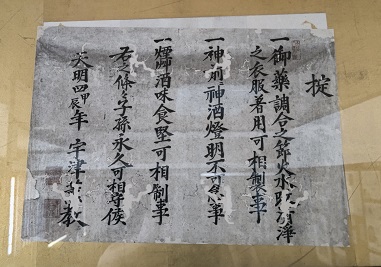 掟
一御薬調合之節火水既斎浄
之衣服著用可相製事
一神前神酒燈明不可怠事
一煙酒味食堅可相制事
右之條々子孫永久可相守候
天明四甲辰年 宇津 教